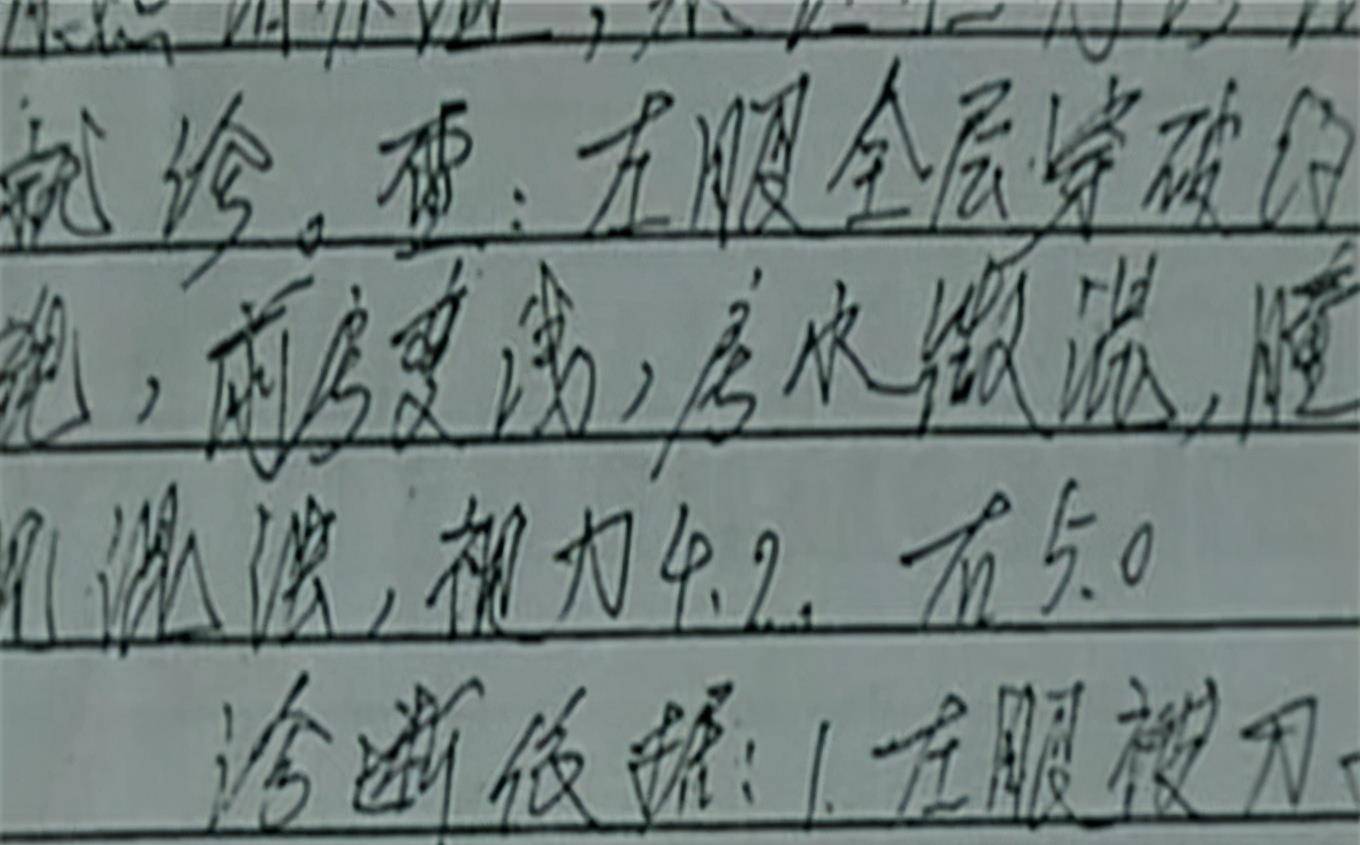 就诊。查：左眼全层穿破的
, 前房变浅, 房水微混, 瞳
混浊, 视力4.2. 右5.0
诊断依据：1. 左眼被刀